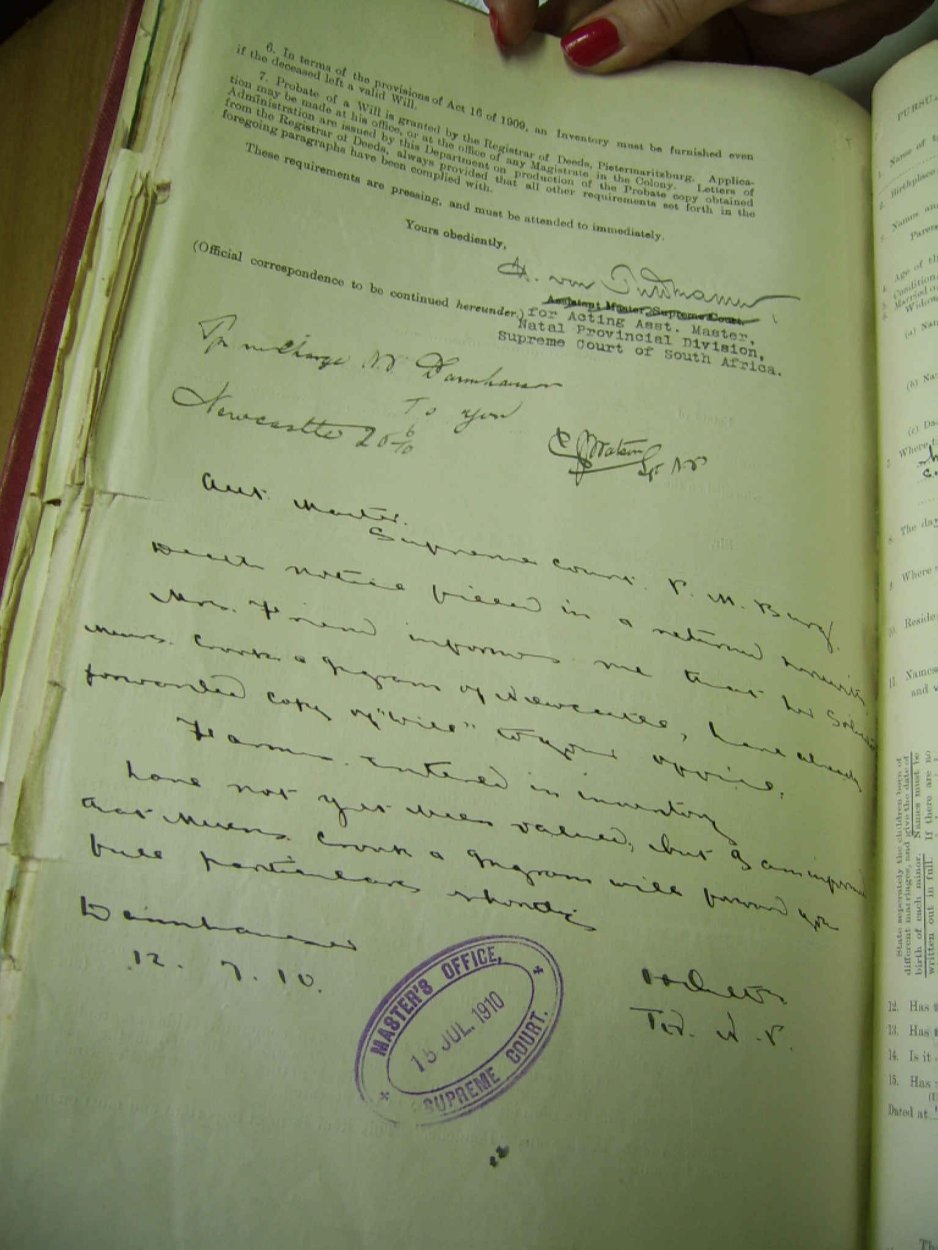 6. In terms of the provisions of Act 16 of 1909, an Inventory must be furnished even
if the deceased left a valid Will.
7. Probate of a Will is granted by the Registrar of Deeds, Pietermaritzburg. Applica-
tion may be made at his office, or at the office of any Magistrate in the Colony. Letters of
Administration are issued by this Department on production of the Probate copy obtained
from the Registrar of Deeds, always provided that all other requirements set forth in the
foregoing paragraphs have been complied with.
These requirements are pressing, and must be attended to immediately.
Yours obediently,
(Official correspondence to be continued hereunder.)
Assistant Master, Supreme Court,
for Acting Asst. Master,
Natal Provincial Division,
Supreme Court of South Africa.
in Charge N.P. Dannhauser
To you
Newcastle 20 6/10
Watson
Asst. Master.
Supreme Court. P. M. Burg.
Death notice filled in & returned
Mrs. Friend informs me that her
Messrs. & of Newcastle, have already
forwarded copy of "Will" to your office.
Farms entered in inventory
have not yet been valued, but I am
that Messrs. & will forward you
full particulars shortly
Dannhauser
12. 7. 10.
MASTER'S OFFICE,
JUL. 1910
SUPREME COURT.
PURSU
Name of
Birthplace
Names and
Paren
Age of th
Condition
Married o
Widow
(a) Nat
(b) Na
(c) Da
Where
The day
Where
Reside
11. Names
and w
State separately the children born of
different marriages, and give the date of
birth of each minor. Names must be
written out in full. If there are no
12. Has
13. Has
14. Is it
15. Has
Dated at